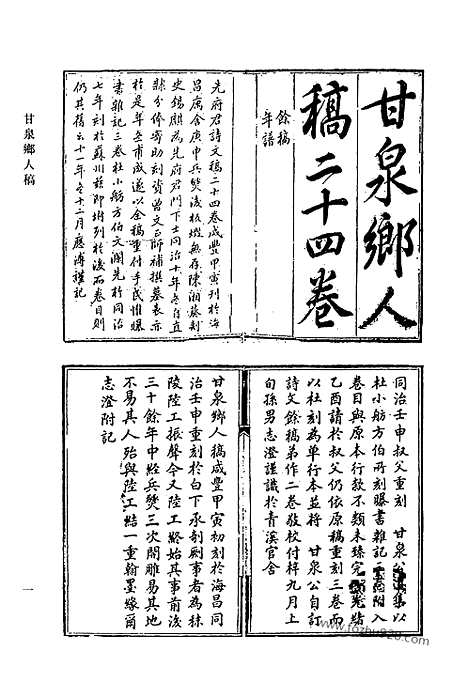 甘泉鄉人
稿二十四卷
餘稿
年譜
先府君詩文稿二十四卷咸豐甲寅刊於海
昌廨舍庚申兵燹後板燬無存陳湘制
史錫麒為先府君門下士同治十年冬自直
隸分俸寄助刻資曾文正師補撰墓表亦
於是年冬甫成遂以全稿重付手民惟曝
書雜記三卷杜小舫方伯文瀾先於同治
七年刻於蘇州茲即坿列於後而卷目則
仍其舊云十一年冬十二月應溥謹記
同治壬申叔父重刻 甘泉公集以
杜小舫方伯所刻曝書雜記附入
卷目與原本行款不類未臻完光緒
乙酉請於叔父仍依原稿重刻三卷而
以杜刻為單行本並將 甘泉公自訂
詩文餘稿弟作二卷敬校付梓九月上
旬孫男志澄謹識於青溪官舍
甘泉鄉人稿咸豐甲寅初刻於海昌同
治壬申重刻於白下承剞劂事者為秣
陵陸工振聲今又陸工終始其事前後
三十餘年中經兵燹三次開雕易其地
不易其人殆與陸工結一重翰墨緣爾
志澄附記
甘泉鄉人稿
一